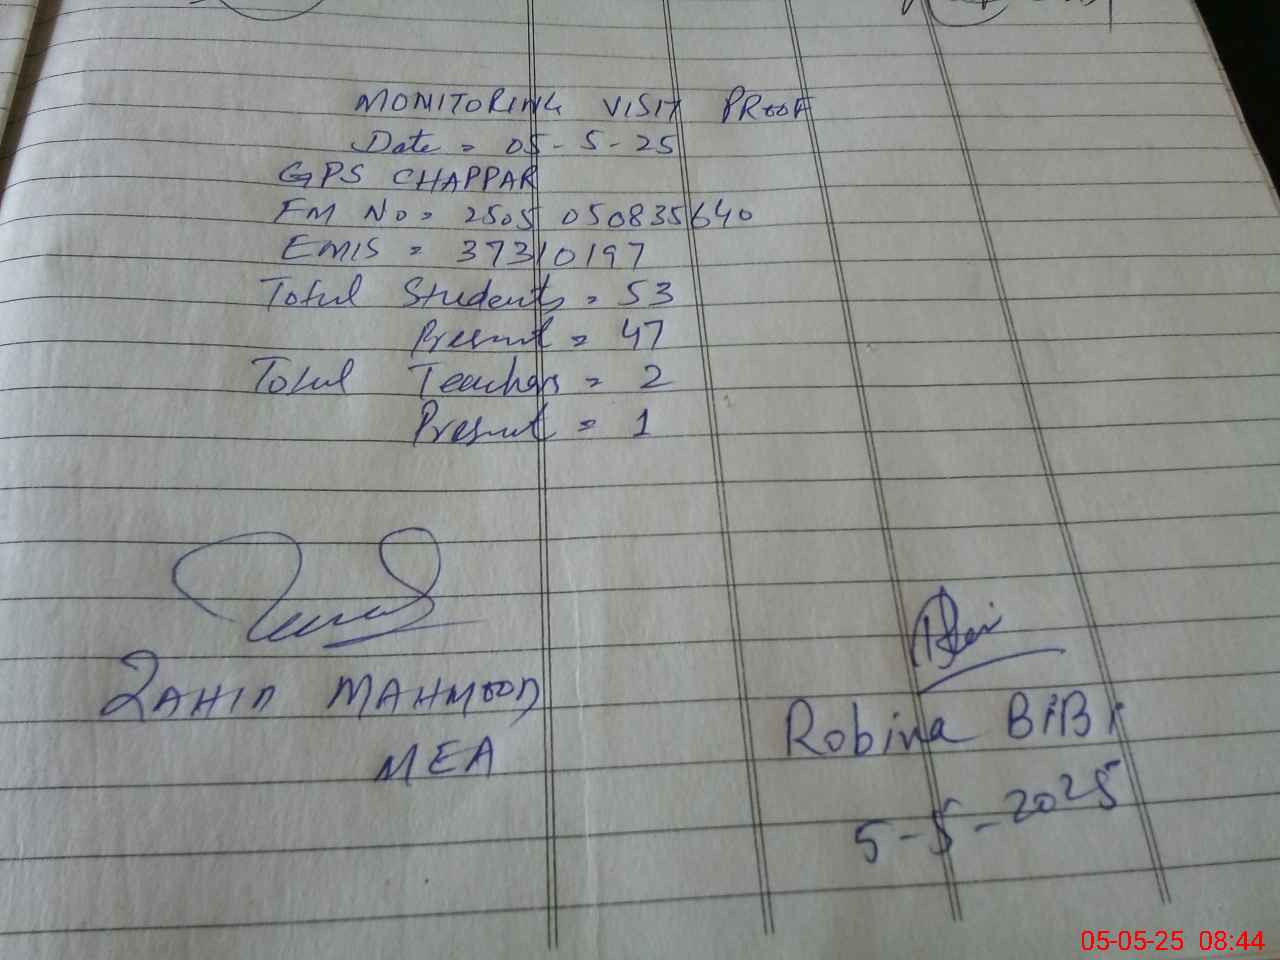 MONITORING VISIT PROOF
Date = 05-5-25
GPS CHAPPAR
FM No = 2505050835640
EMIS = 37310197
Total Students = 53
Present = 47
Total Teachers = 2
Present = 1
ZAHID MAHMOOD
MEA
Robina BiBi
5-5-2025
05-05-25 08:44